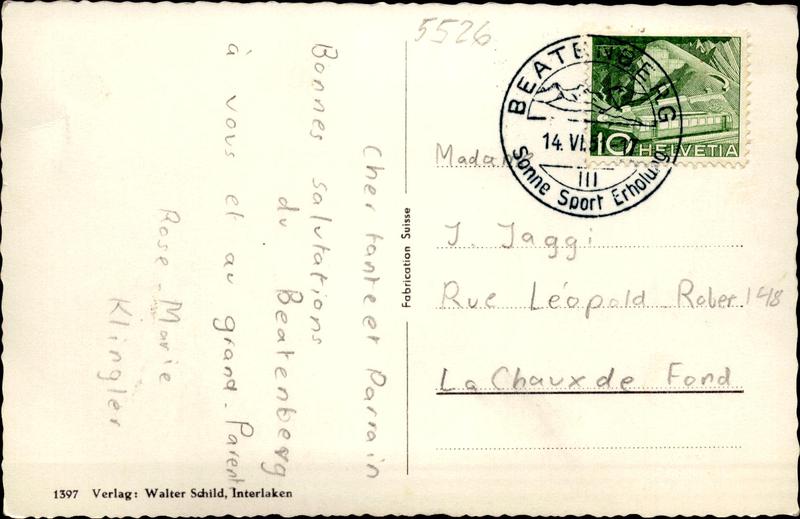 5526
BEATENBERG
14. VI. 5
III
Sonne Sport Erholung
10 HELVETIA
Cher tante et Parrain
Bonnes salutations
du Beatenberg
à vous et au grand-Parent
Rose-Marie
Klingler
Fabrication Suisse
Madam
J. Jaggi
Rue Léopold Rober 148
La Chaux de Fond
1397 Verlag: Walter Schild, Interlaken